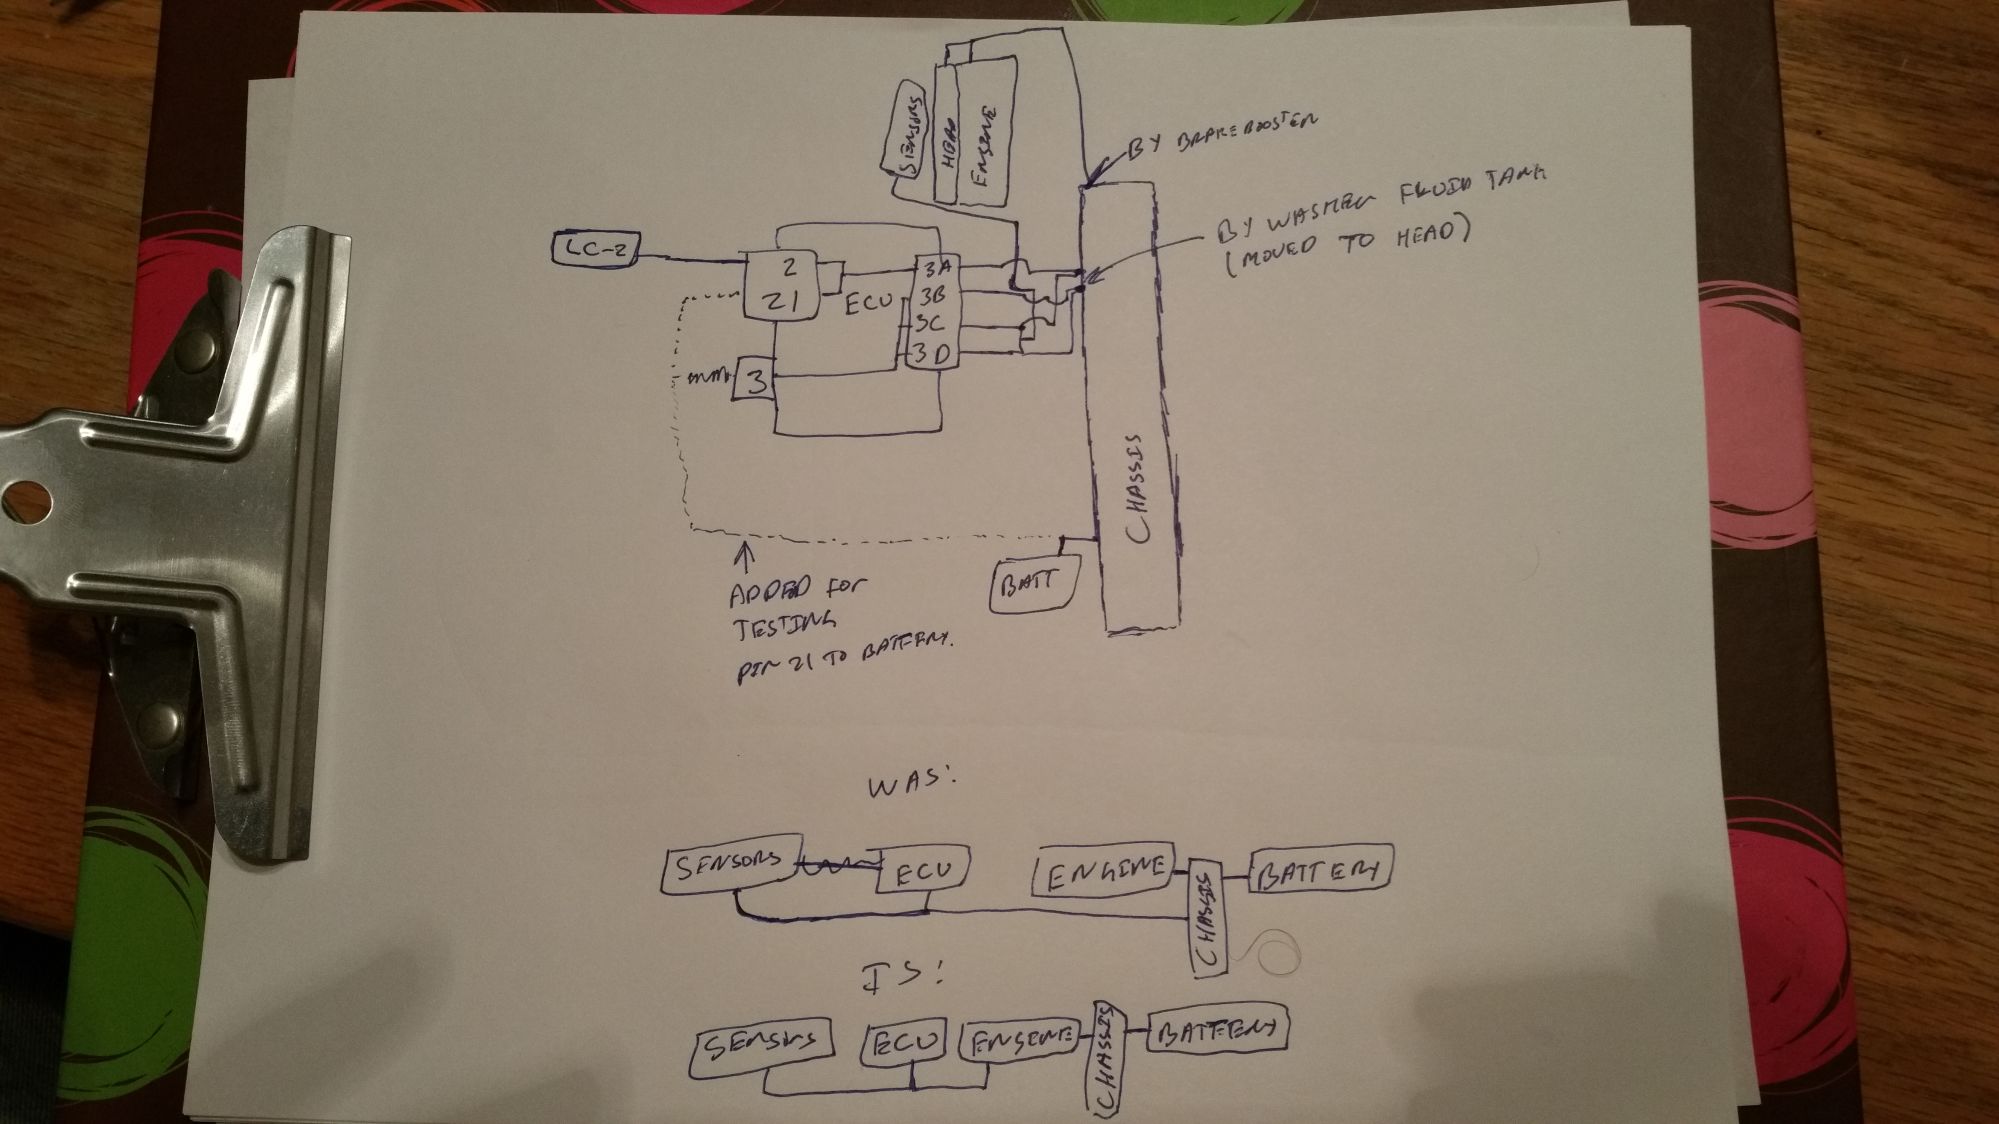 SENSORS
HEAD
ENGINE
BY BRAKE BOOSTER
BY WASHER FLUID TANK
(MOVED TO HEAD)
LC-2
2
21
ECU
3A
3B
3C
3D
3
CHASSIS
BATT
ADDED FOR
TESTING
PIN 21 TO BATTERY.
WAS:
SENSORS
ECU
ENGINE
CHASSIS
BATTERY
IS:
SENSORS
ECU
ENGINE
CHASSIS
BATTERY